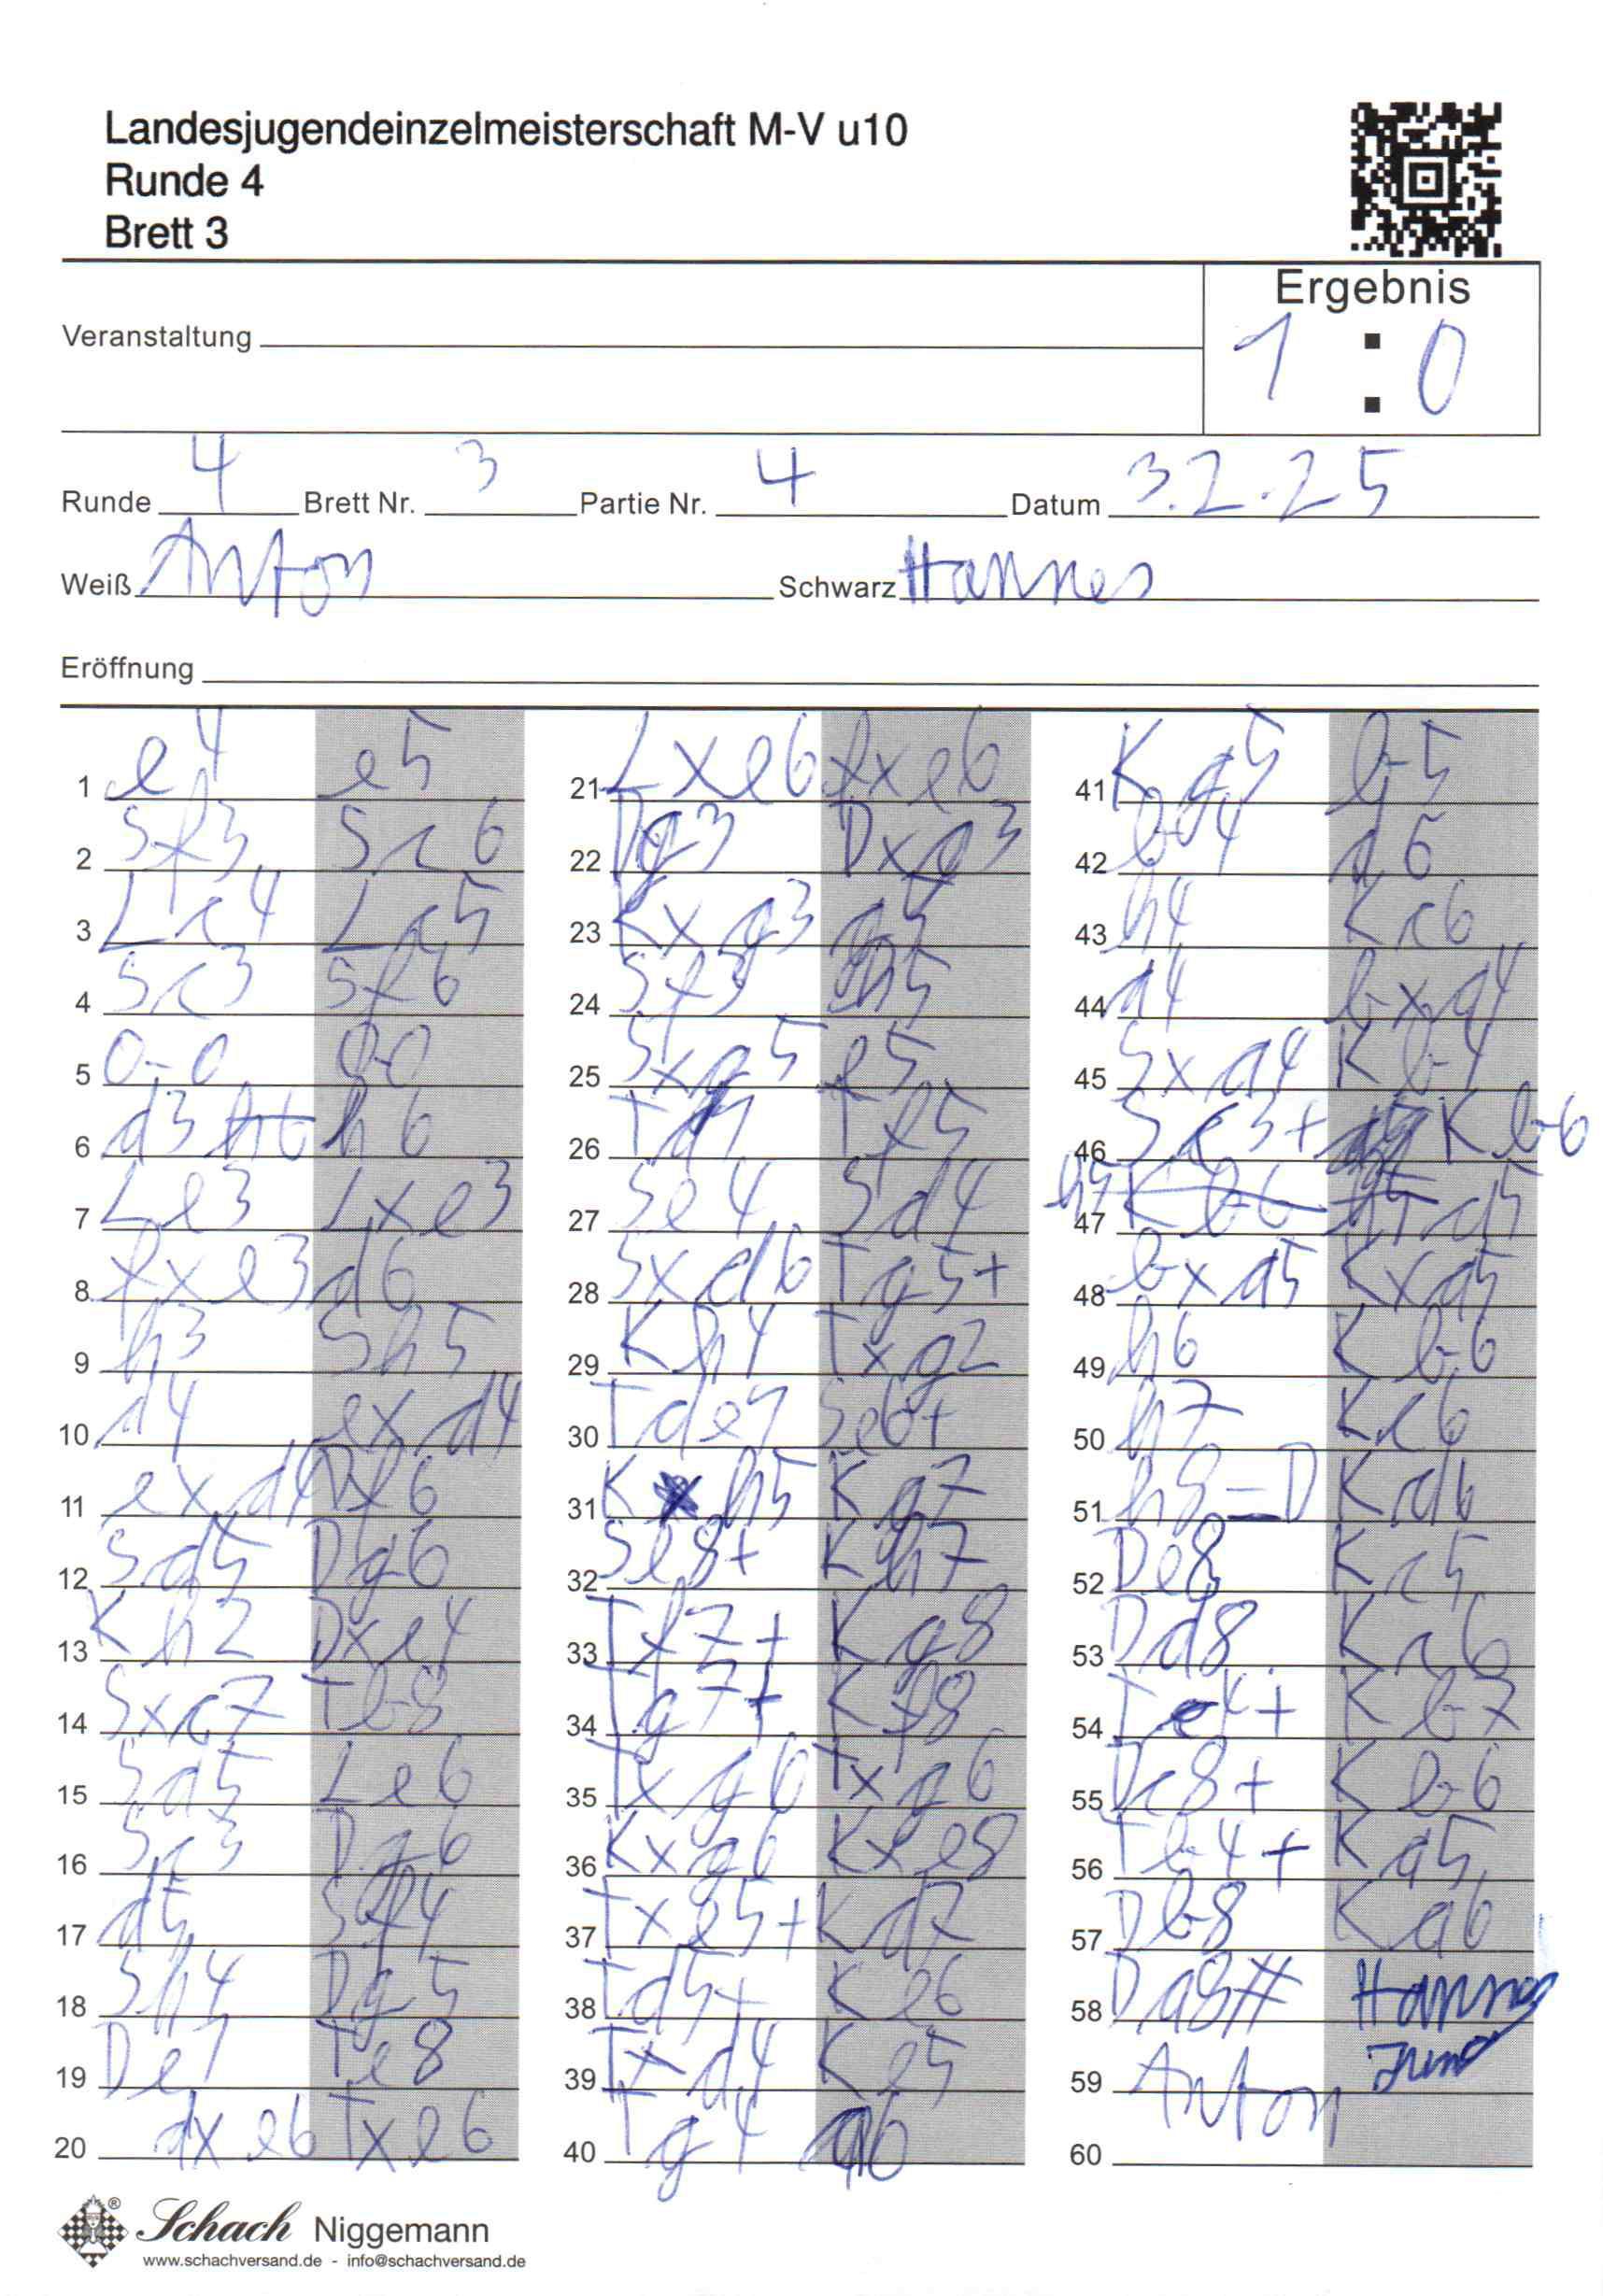 Landesjugendeinzelmeisterschaft M-V u10
Runde 4
Brett 3
Ergebnis
Veranstaltung
1 : 0
Runde 4 Brett Nr. 3 Partie Nr. 4 Datum 3.2.25
Weiß Anton Schwarz Hannes
Eröffnung
1 e4 e5
2 Sf3 Sc6
3 Lc4 Lc5
4 Sc3 Sf6
5 0-0 0-0
6 d3 h6
7 Le3 Lxe3
8 fxe3 d6
9 h3 Sh5
10 d4 exd4
11 exd4 Df6
12 Sd5 Dg6
13 Kh2 Dxe4
14 Sxc7 Tb8
15 Sd5 Le6
16 Sc3 Dg6
17 d5 Sf4
18 Sh4 Dg5
19 De1 Te8
20 dxe6 Txe6
21 Lxe6 fxe6
22 Dg3 Dxg3
23 Kxg3 g5
24 Sf3 Sh5
25 Sxg5 e5
26 Td1 Tf5
27 Se4 Sd4
28 Sxd6 Tg5+
29 Kh4 Txg2
30 Tde1 Se6+
31 K h5 Kg7
32 Se8+ Kh7
33 Tf7+ Kg8
34 Tg7+ Kf8
35 Txg6 Txg6
36 Kxg6 Kxe8
37 Txe5+ Kd7
38 Td5+ Ke6
39 Td4 Ke5
40 Tg4 a6
41 Kg5 b5
42 b4 d6
43 h4 Kc6
44 a4 bxa4
45 Sxa4 Kb4
46 Sc3+ Kb6
47 h5 a5
48 bxa5 Kxa5
49 h6 Kb6
50 h7 Kc6
51 h8=D Kd6
52 De8 Kc5
53 Dd8 Kc6
54 Te4+ Kb7
55 Dc8+ Kb6
56 Tb4+ Ka5
57 Db8 Ka6
58 Da8# Hannes
59 Anton
60
Schach Niggemann
www.schachversand.de - info@schachversand.de